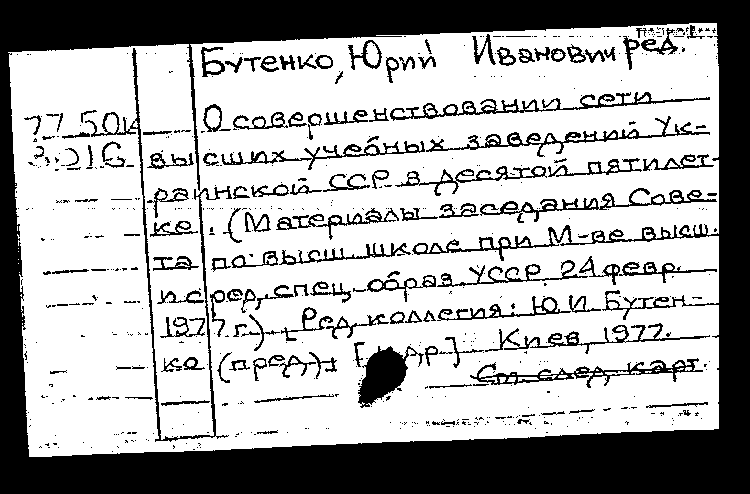 Бутенко, Юрий Иванович ред.
О совершенствовании сети
высших учебных заведений Ук-
раинской ССР в десятой пятилет-
ке. (Материалы заседания Сове-
та по высш. школе при М-ве высш.
и сред. спец. образ. УССР. 24 февр.
1977 г.) Ред. коллегия: Ю. И. Бутен-
ко (пред) [и др] Киев, 1977.
См. след. карт.
77 50к
3.016